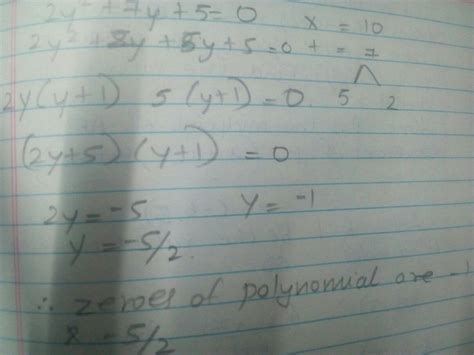 2y² + 7y + 5 = 0 x = 10
2y² + 2y + 5y + 5 = 0 + = 7
2y(y+1) 5(y+1) = 0 5 2
(2y+5) (y+1) = 0
2y = -5 y = -1
y = -5/2.
∴ zeroes of polynomial are -1
& -5/2